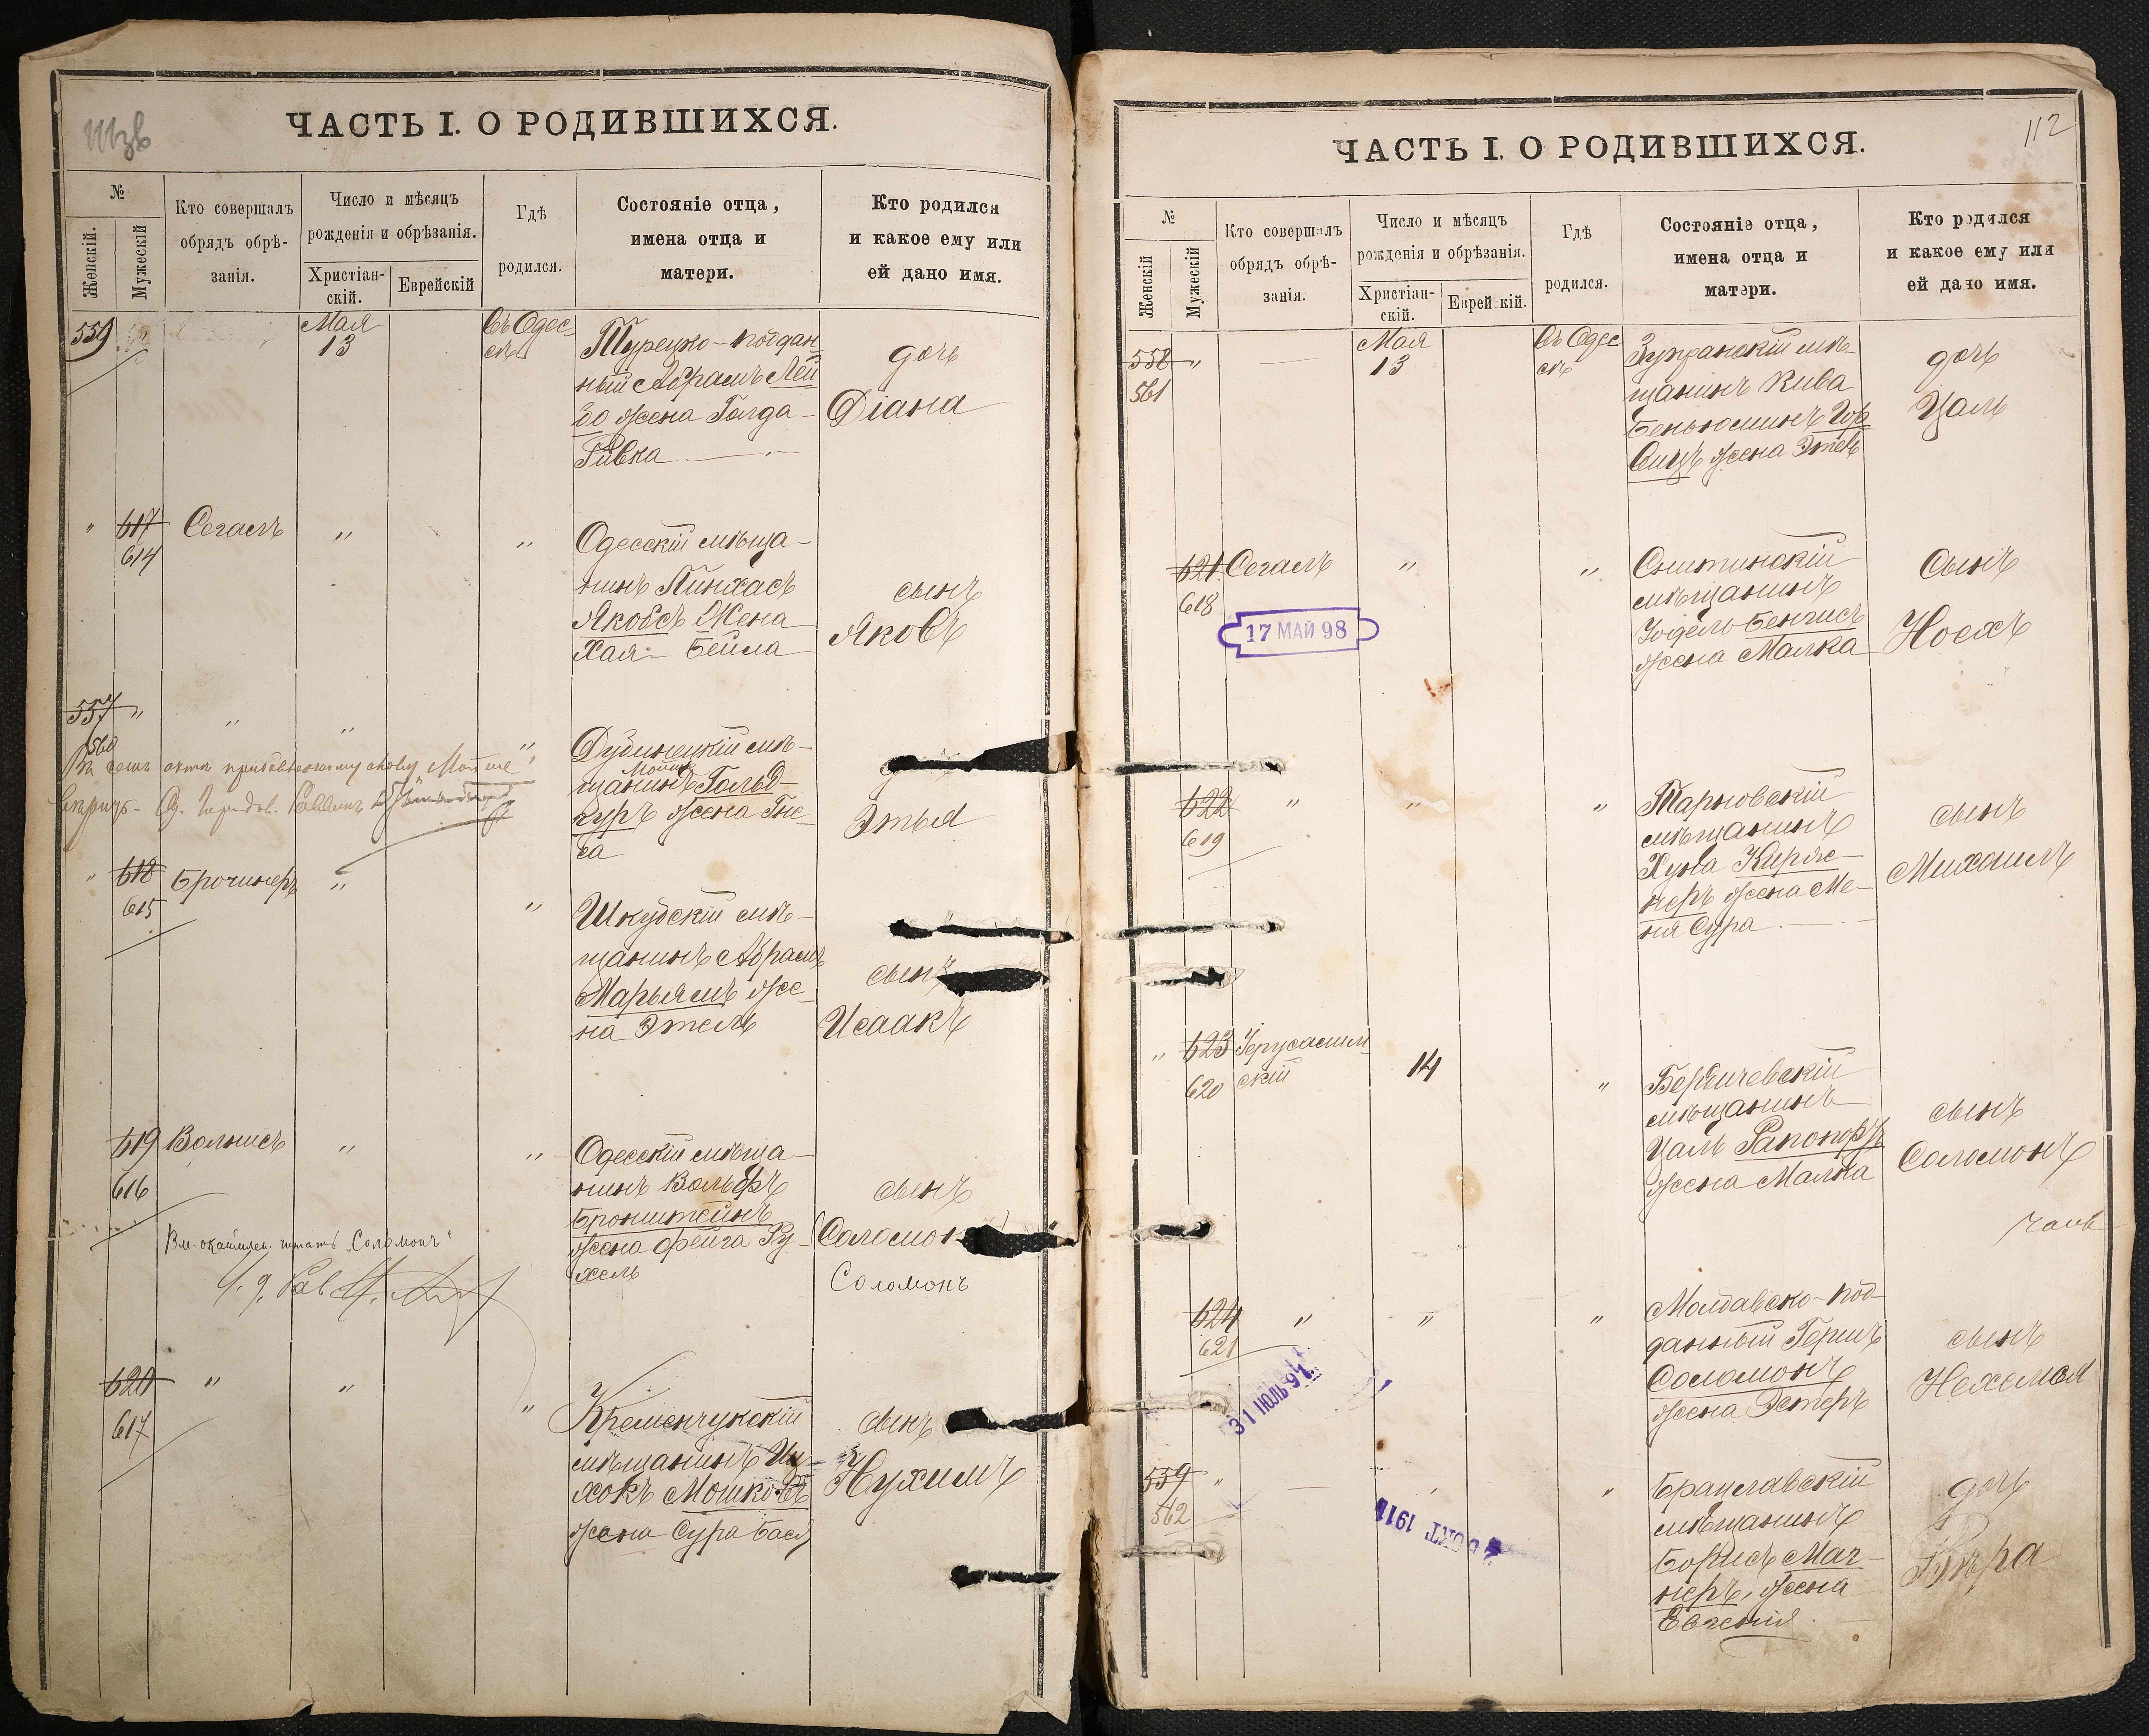 ЧАСТЬ I. О РОДИВШИХСЯ.
№
Женскій.
Мужескій
Кто совершалъ
обрядъ обрѣ-
занія.
Число и мѣсяцъ
рожденія и обрѣзанія.
Христіан-
скій.
Еврейскій
Гдѣ
родился.
Состояніе отца,
имена отца и
матери.
Кто родился
и какое ему или
ей дано имя.
559
Мая
13
Въ Одес-
сѣ
Турецко-поддан
ный Абрамъ Лей
бо жена Голда-
Ривка
дочь
Діана
" 617
614
Сегалъ
"
"
Одесскій мѣща-
нинъ Пинхасъ
Якобсъ Жена
Хая-Бейла
сынъ
Яковъ
557 "
560
"
"
"
Дубинецкій мѣ-
щанинъ Гольд-
Мошко
жена Гне-
са
Этья
" 618
615
Брочинеръ
"
"
Шкудскій мѣ-
щанинъ Абрамъ
Марьямъ же-
на Этель
сынъ
Исаакъ
619
616
Вольнисъ
"
"
Одесскій мѣща-
нинъ Вольфъ
Бронштейнъ
жена Фейга Ру-
хель
сынъ
Соломон
Соломонъ
читать "Соломонъ"
620
617
"
"
"
Кременчукскій
мѣщанинъ Иц-
хокъ Мошковъ
жена Сура Бася
сынъ
Нухимъ
112
ЧАСТЬ I. О РОДИВШИХСЯ.
№
Женскій
Мужескій
Кто совершалъ
обрядъ обрѣ-
занія.
Число и мѣсяцъ
рожденія и обрѣзанія.
Христіан-
скій.
Еврейскій.
Гдѣ
родился.
Состояніе отца,
имена отца и
матери.
Кто родился
и какое ему или
ей дано имя.
558 "
561
Мая
13
Въ Одес
сѣ
мѣ-
щанинъ Кива
Беньюминъ Гор
вицъ жена Этель
дочь
Цаль
621
618
Сегалъ
"
"
17 МАЙ 98
Снитинскій
мѣщанинъ
Іодель Бенгисъ
жена Малка
Сынъ
Ноехъ
622
619
"
"
"
Тарновскій
мѣщанинъ
Хуна Киржс-
неръ жена Ме-
ня Сура
сынъ
Михаилъ
" 623
620
Іерусалим
скій
14
"
Бердичевскій
мѣщанинъ
Цаль Рапопортъ
жена Малка
сынъ
Соломонъ
624
621
"
"
"
31 ІЮЛЬ 97
Молдавско-под-
данный Гершъ
Соломонъ
жена Эстеръ
сынъ
Нехемья
559 "
562
"
ОКТ 191
Брацлавскій
мѣщанинъ
Борисъ Маг-
неръ, жена
Евгенія
дочь